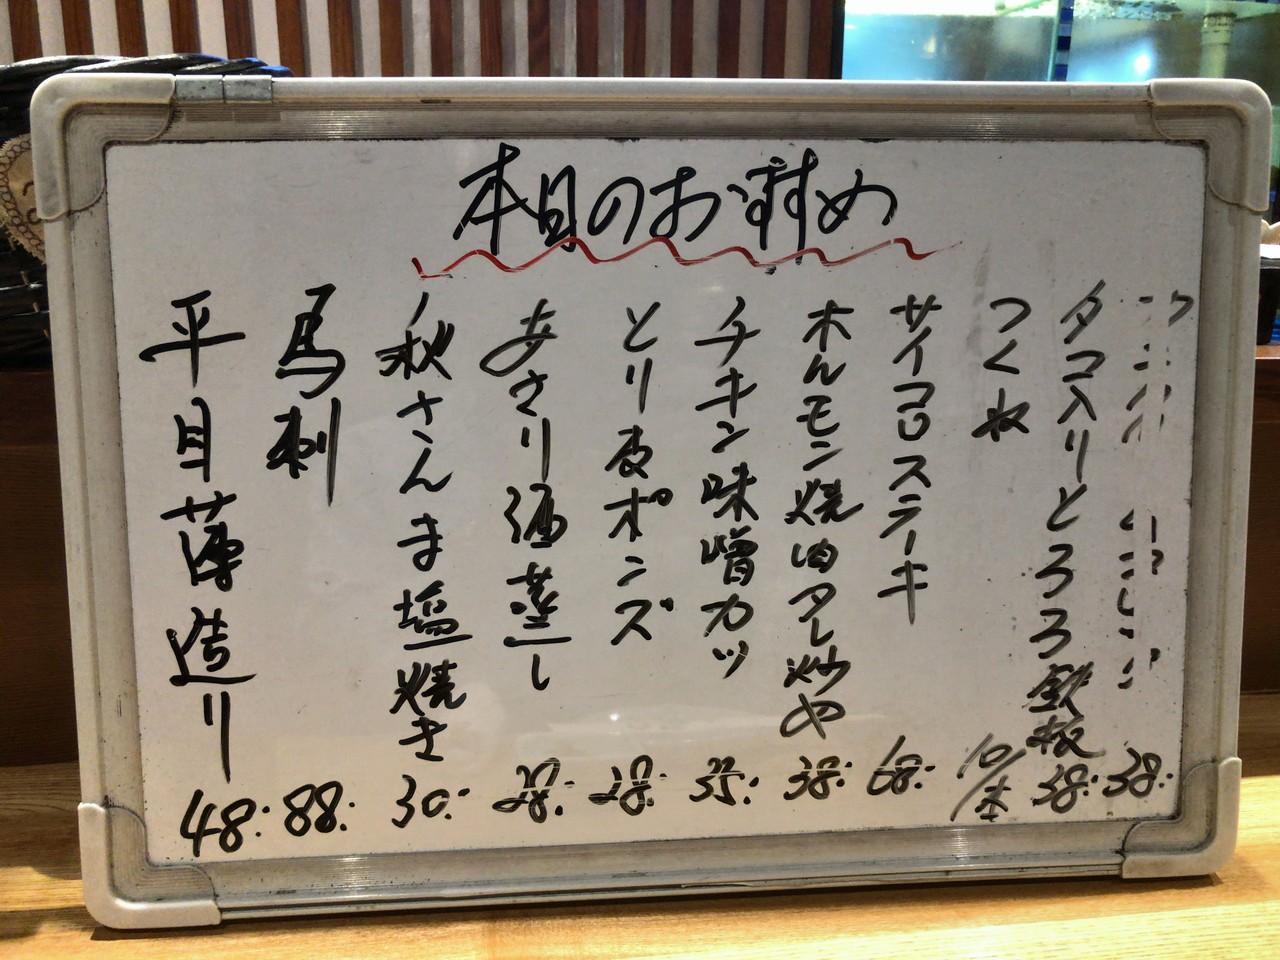 本日のおすすめ
タコ入りとろろ鉄板 38:
つくね 10/本
サイコロステーキ 68:
ホルモン焼肉タレ炒め 38:
チキン味噌カツ 35:
とり皮ポンズ 28:
あさり酒蒸し 28:
秋さんま塩焼き 30:
馬刺 88:
平目薄造り 48:
38: